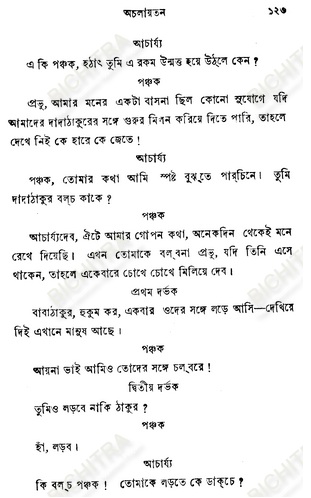 অচলায়তন ১২৩
আচার্য্য
এ কি পঞ্চক, হঠাৎ তুমি এ রকম উন্মত্ত হয়ে উঠলে কেন ?
পঞ্চক
প্রভু, আমার মনের একটা বাসনা ছিল কোনো সুযোগে যদি
আমাদের দাদাঠাকুরের সঙ্গে গুরুর মিলন করিয়ে দিতে পারি, তাহলে
দেখে নিই কে হারে কে জেতে !
আচার্য্য
পঞ্চক, তোমার কথা আমি স্পষ্ট বুঝ্তে পার্‌চিনে। তুমি
দাদাঠাকুর বল্‌চ কাকে ?
পঞ্চক
আচার্য্যদেব, ঐটে আমার গোপন কথা, অনেকদিন থেকেই মনে
রেখে দিয়েছি। এখন তোমাকে বল্‌বনা প্রভু, যদি তিনি এসে
থাকেন, তাহলে একেবারে চোখে চোখে মিলিয়ে দেব।
প্রথম দর্ভক
বাবাঠাকুর, হুকুম কর, একবার ওদের সঙ্গে লড়ে আসি—দেখিয়ে
দিই এখানে মানুষ আছে।
পঞ্চক
আয়না ভাই আমিও তোদের সঙ্গে চল্‌বরে !
দ্বিতীয় দর্ভক
তুমিও লড়বে নাকি ঠাকুর ?
পঞ্চক
হাঁ, লড়ব।
আচার্য্য
কি বল্‌চ পঞ্চক ! তোমাকে লড়তে কে ডাক্‌চে ?
BICHITRA